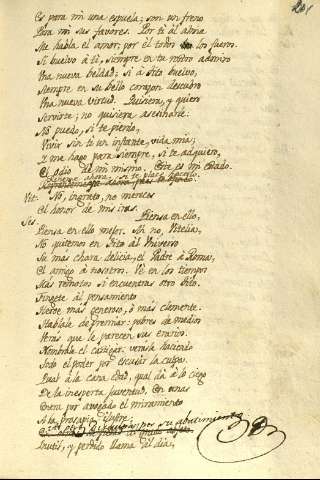 Es para mi una espuela; son un freno
Para mi sus favores. Por tí al alma
Me habla el amor; por él todos los fueros.
Si buelvo à tí, siempre en tu rostro admiro
Una nueva beldad; si à Tito buelvo,
Siempre en su bello corazon descubro
Una nueva virtud. Quisiera, y quiero
Servirte; no quisiera asesinarle.
No puedo, si te pierdo,
Vivir sin tí un instante, vida mia;
Y me hago para siempre, si te adquiero,
El odio de mi mismo. Este es mi estado.
ahora, si te place hacerlo.
Vit. No, ingrato, no mereces
El honor de mis iras.
Ses. Piensa en ello,
Piensa en ello mejor. Ah no, Vitelia,
No quitemos en Tito al Universo
Su mas chara delicia, el Padre à Roma,
El amigo à nosotros. Vé en los tiempos
Mas remotos si encuentras otro Tito.
Fingete al pensamiento
Heroe mas generoso, ò mas clemente.
Hablale de premiar: pobres de medios
Veràs que le parecen sus erarios.
Nombrale el castigar: veràsle haciendo
Todo el poder por escusar la culpa.
Qual à la cana edad, qual dà à lo ciego
De la inesperta juventud. En unos
Creen por abogado el miramiento
A la prosapia ilustre;
por su abatimiento
Inutil, y perdido llama del dia,